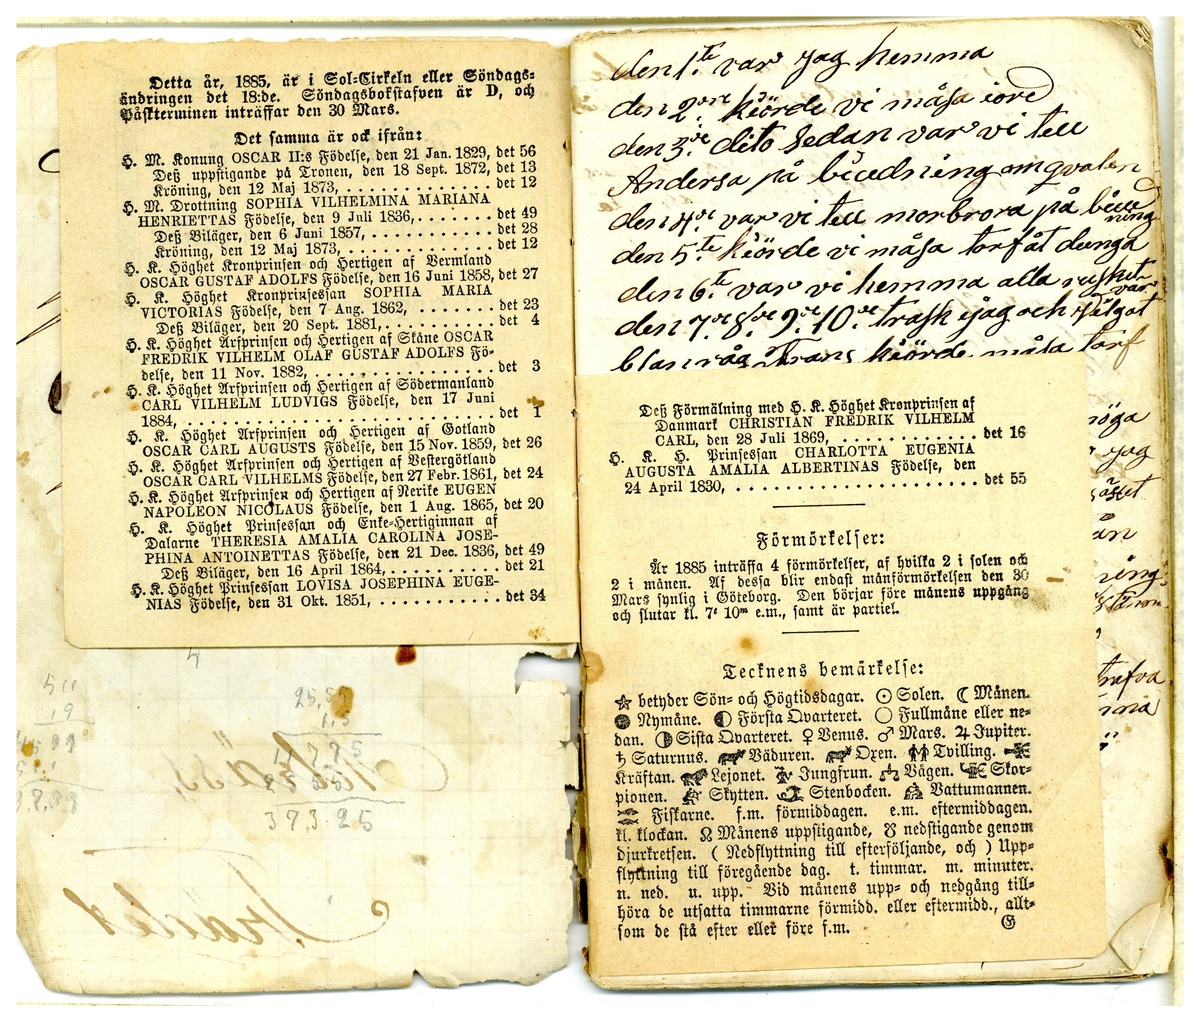 Detta år, 1885, är i Sol-Cirkeln eller Söndags-
ändringen det 18:de. Söndagsbokstafven är D, och
Påskterminen inträffar den 30 Mars.
Det samma är ock ifrån:
H. M. Konung OSCAR II:s Födelse, den 21 Jan. 1829, det 56
Deß uppstigande på Tronen, den 18 Sept. 1872, det 13
Kröning, den 12 Maj 1873, . . . . . . . . . . . . . . det 12
H. M. Drottning SOPHIA VILHELMINA MARIANA
HENRIETTAS Födelse, den 9 Juli 1836, . . . . . . . det 49
Deß Biläger, den 6 Juni 1857, . . . . . . . . . . . det 28
Kröning, den 12 Maj 1873, . . . . . . . . . . . . . det 12
H. K. Höghet Kronprinsen och Hertigen af Vermland
OSCAR GUSTAF ADOLFS Födelse, den 16 Juni 1858, det 27
H. K. Höghet Kronprinsessan SOPHIA MARIA
VICTORIAS Födelse, den 7 Aug. 1862, . . . . . . . det 23
Deß Biläger, den 20 Sept. 1881, . . . . . . . . . . det 4
H. K. Höghet Arfprinsen och Hertigen af Skåne OSCAR
FREDRIK VILHELM OLAF GUSTAF ADOLFS Fö-
delse, den 11 Nov. 1882, . . . . . . . . . . . . . . . det 3
H. K. Höghet Arfprinsen och Hertigen af Södermanland
CARL VILHELM LUDVIGS Födelse, den 17 Juni
1884, . . . . . . . . . . . . . . . . . . . . . . . . . . det 1
H. K. Höghet Arfprinsen och Hertigen af Gotland
OSCAR CARL AUGUSTS Födelse, den 15 Nov. 1859, det 26
H. K. Höghet Arfprinsen och Hertigen af Vestergötland
OSCAR CARL VILHELMS Födelse, den 27 Febr. 1861, det 24
H. K. Höghet Arfprinsen och Hertigen af Nerike EUGEN
NAPOLEON NICOLAUS Födelse, den 1 Aug. 1865, det 20
H. K. Höghet Prinsessan och Enke-Hertiginnan af
Dalarne THERESIA AMALIA CAROLINA JOSE-
PHINA ANTOINETTAS Födelse, den 21 Dec. 1836, det 49
Deß Biläger, den 16 April 1864, . . . . . . . . . . . det 21
H. K. Höghet Prinsessan LOVISA JOSEPHINA EUGE-
NIAS Födelse, den 31 Okt. 1851, . . . . . . . . . . . det 34
511
19
25,55
15
12775
373.25
den 1te var jag hemma
den 2dre kiörde vi måsa iord
den 3de dito sedan var vi tell
Andersa på biudning om qvalen
den 4de var vi tell morbrora på biud
ning
den 5te kiörde vi måsa torf åt dunga
den 6te var vi hemma alla
var
den 7de 8de 9de 10de trask ijag och
blan råg kiörde måsa torf
jag
Deß Förmälning med H. K. Höghet Kronprinsen af
Danmark CHRISTIAN FREDRIK VILHELM
CARL, den 28 Juli 1869, . . . . . . . . . . . . . det 16
H. K. H. Prinsessan CHARLOTTA EUGENIA
AUGUSTA AMALIA ALBERTINAS Födelse, den
24 April 1830, . . . . . . . . . . . . . . . . . . . . . . . det 55
Förmörkelser:
År 1885 inträffa 4 förmörkelser, af hvilka 2 i solen och
2 i månen. Af dessa blir endast månförmörkelsen den 30
Mars synlig i Göteborg. Den börjar före månens uppgång
och slutar kl. 7t 10m e.m., samt är partiel.
Tecknens bemärkelse:
☆ betyder Sön- och Högtidsdagar. ☉ Solen. ☾ Månen.
Nymåne. Första Qvarteret. Fullmåne eller ne-
dan. Sista Qvarteret. ♀ Venus. ♂ Mars. ♃ Jupiter.
♄ Saturnus. Väduren. Oxen. Tvilling.
Kräftan. Lejonet. Jungfrun. Vågen. Skor-
pionen. Skytten. Stenbocken. Vattumannen.
Fiskarne. f.m. förmiddagen. e.m. eftermiddagen.
kl. klockan. ☊ Månens uppstigande, ☋ nedstigande genom
djurkretsen. ( Nedflyttning till efterföljande, och ) Upp-
flyttning till föregående dag. t. timmar. m. minuter.
n. ned. u. upp. Vid månens upp- och nedgång till-
höra de utsatta timmarne förmidd. eller eftermidd., allt-
som de stå efter eller före f.m.
G